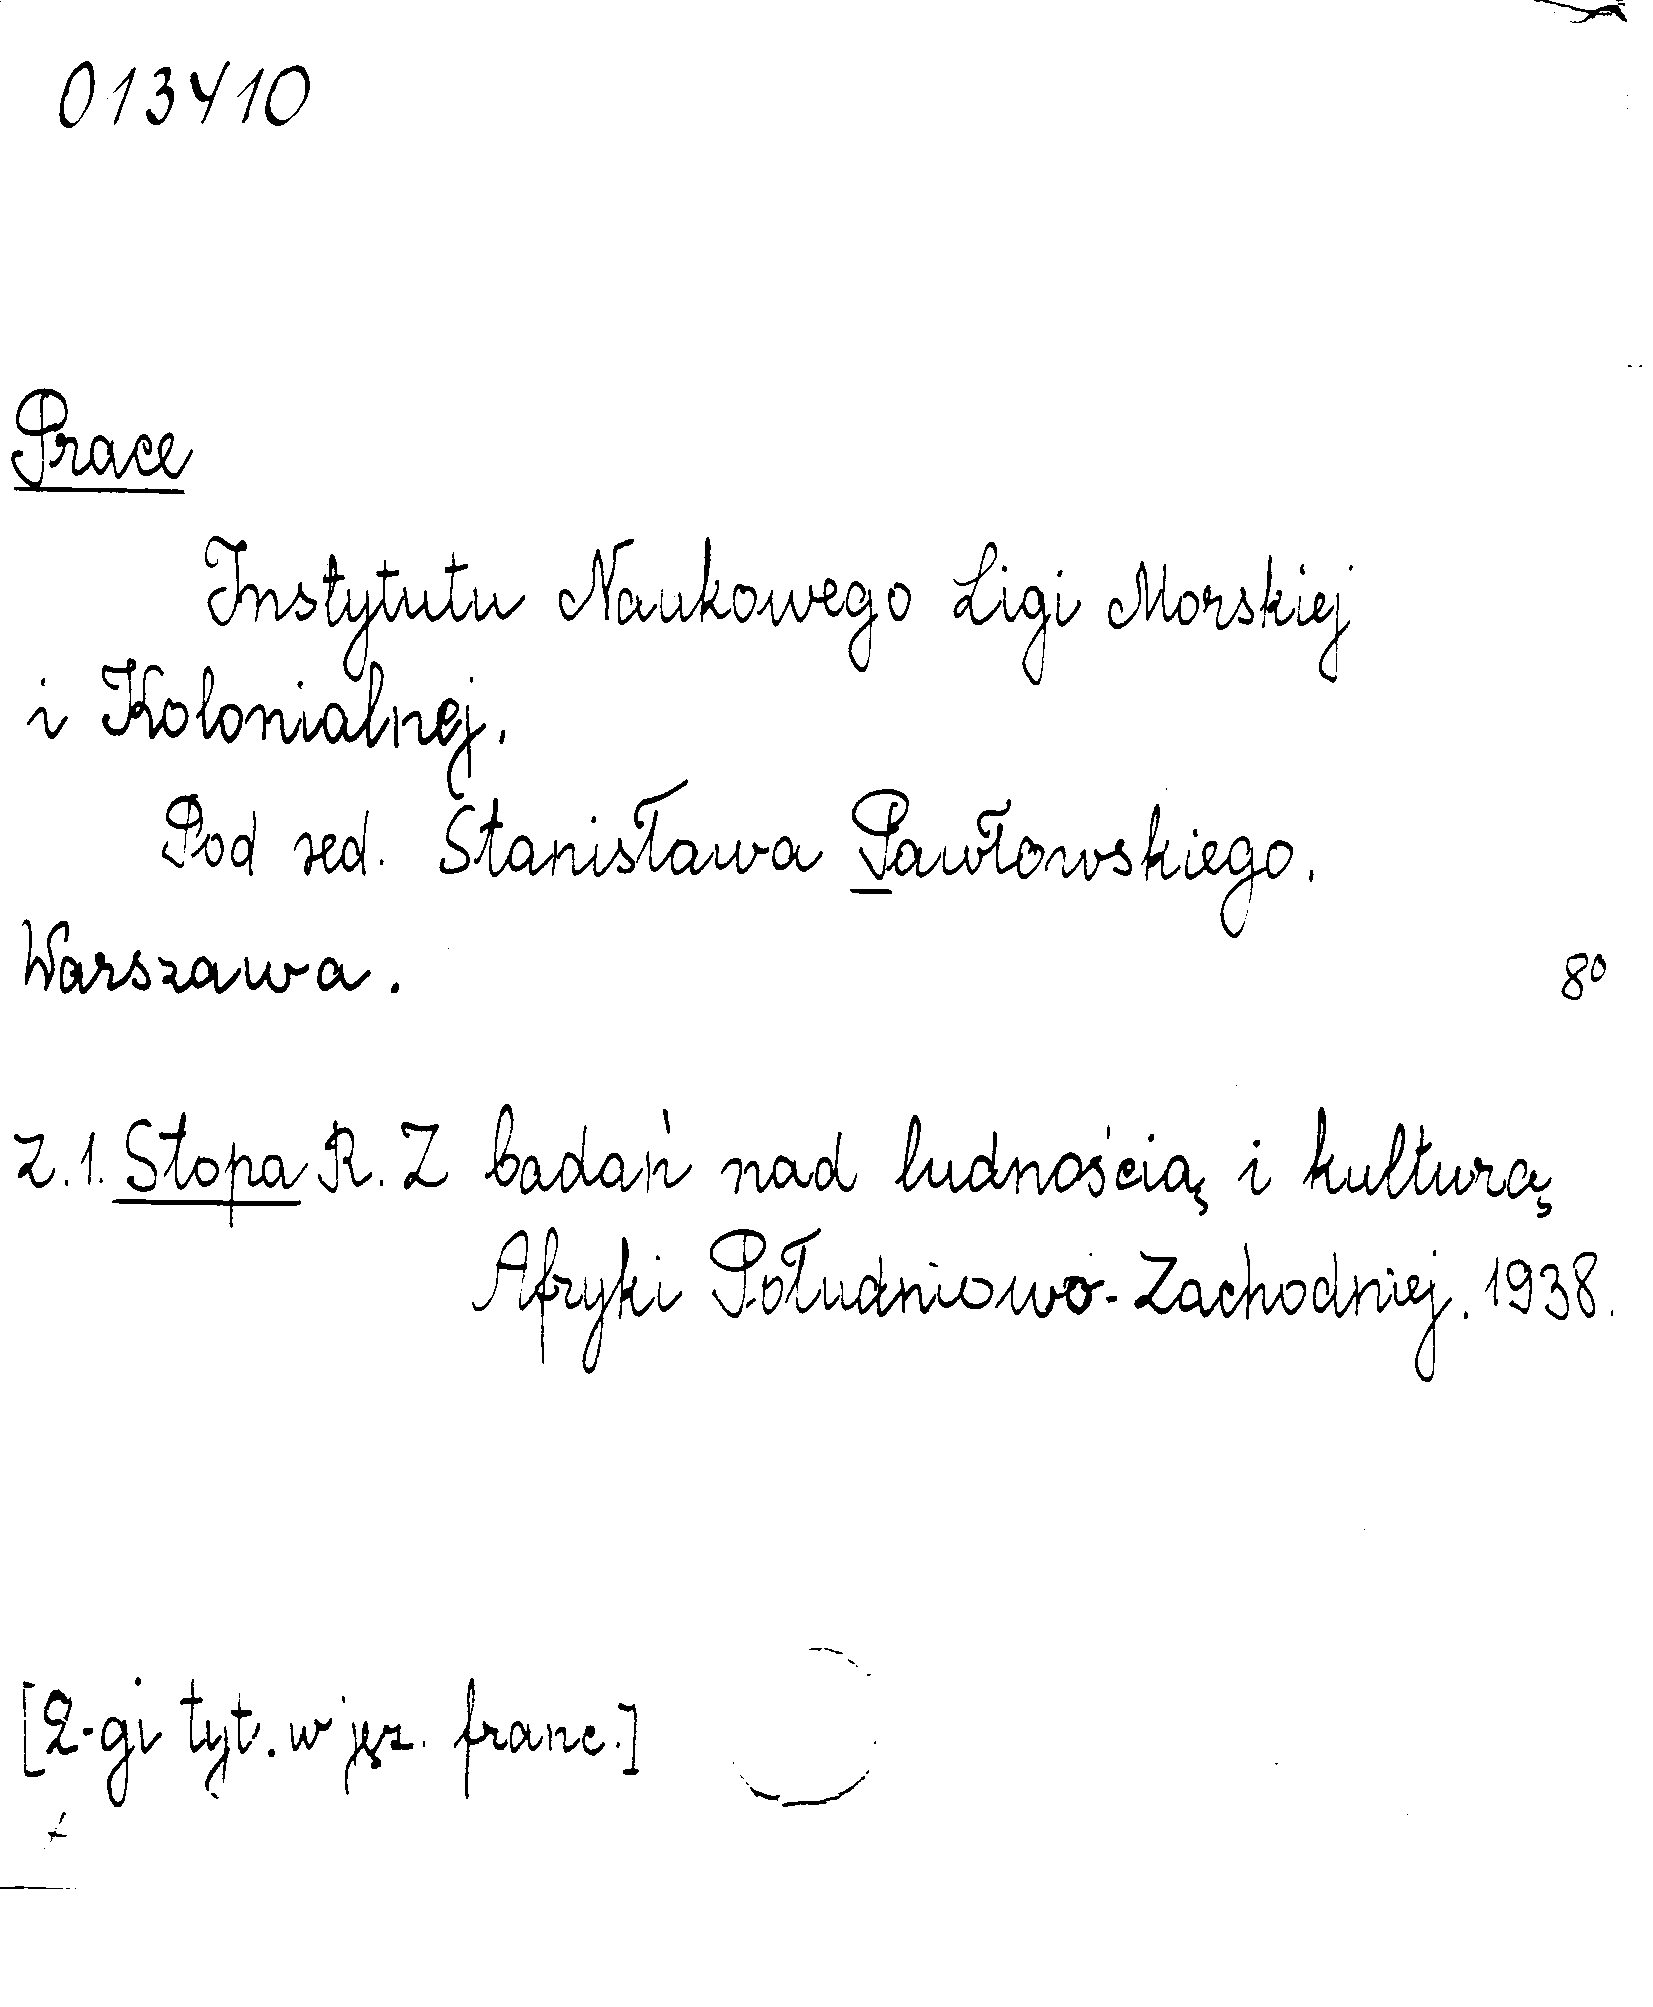 013410
Prace
Instytutu Naukowego Ligi Morskiej
i Kolonialnej.
Pod red. Stanisława Pawłowskiego.
Warszawa. 8º
Z. 1. Stopa R. Z badań nad ludnością i kulturą
Afryki Południowo-Zachodniej. 1938.
[2-gi tyt. w jęz. franc.]